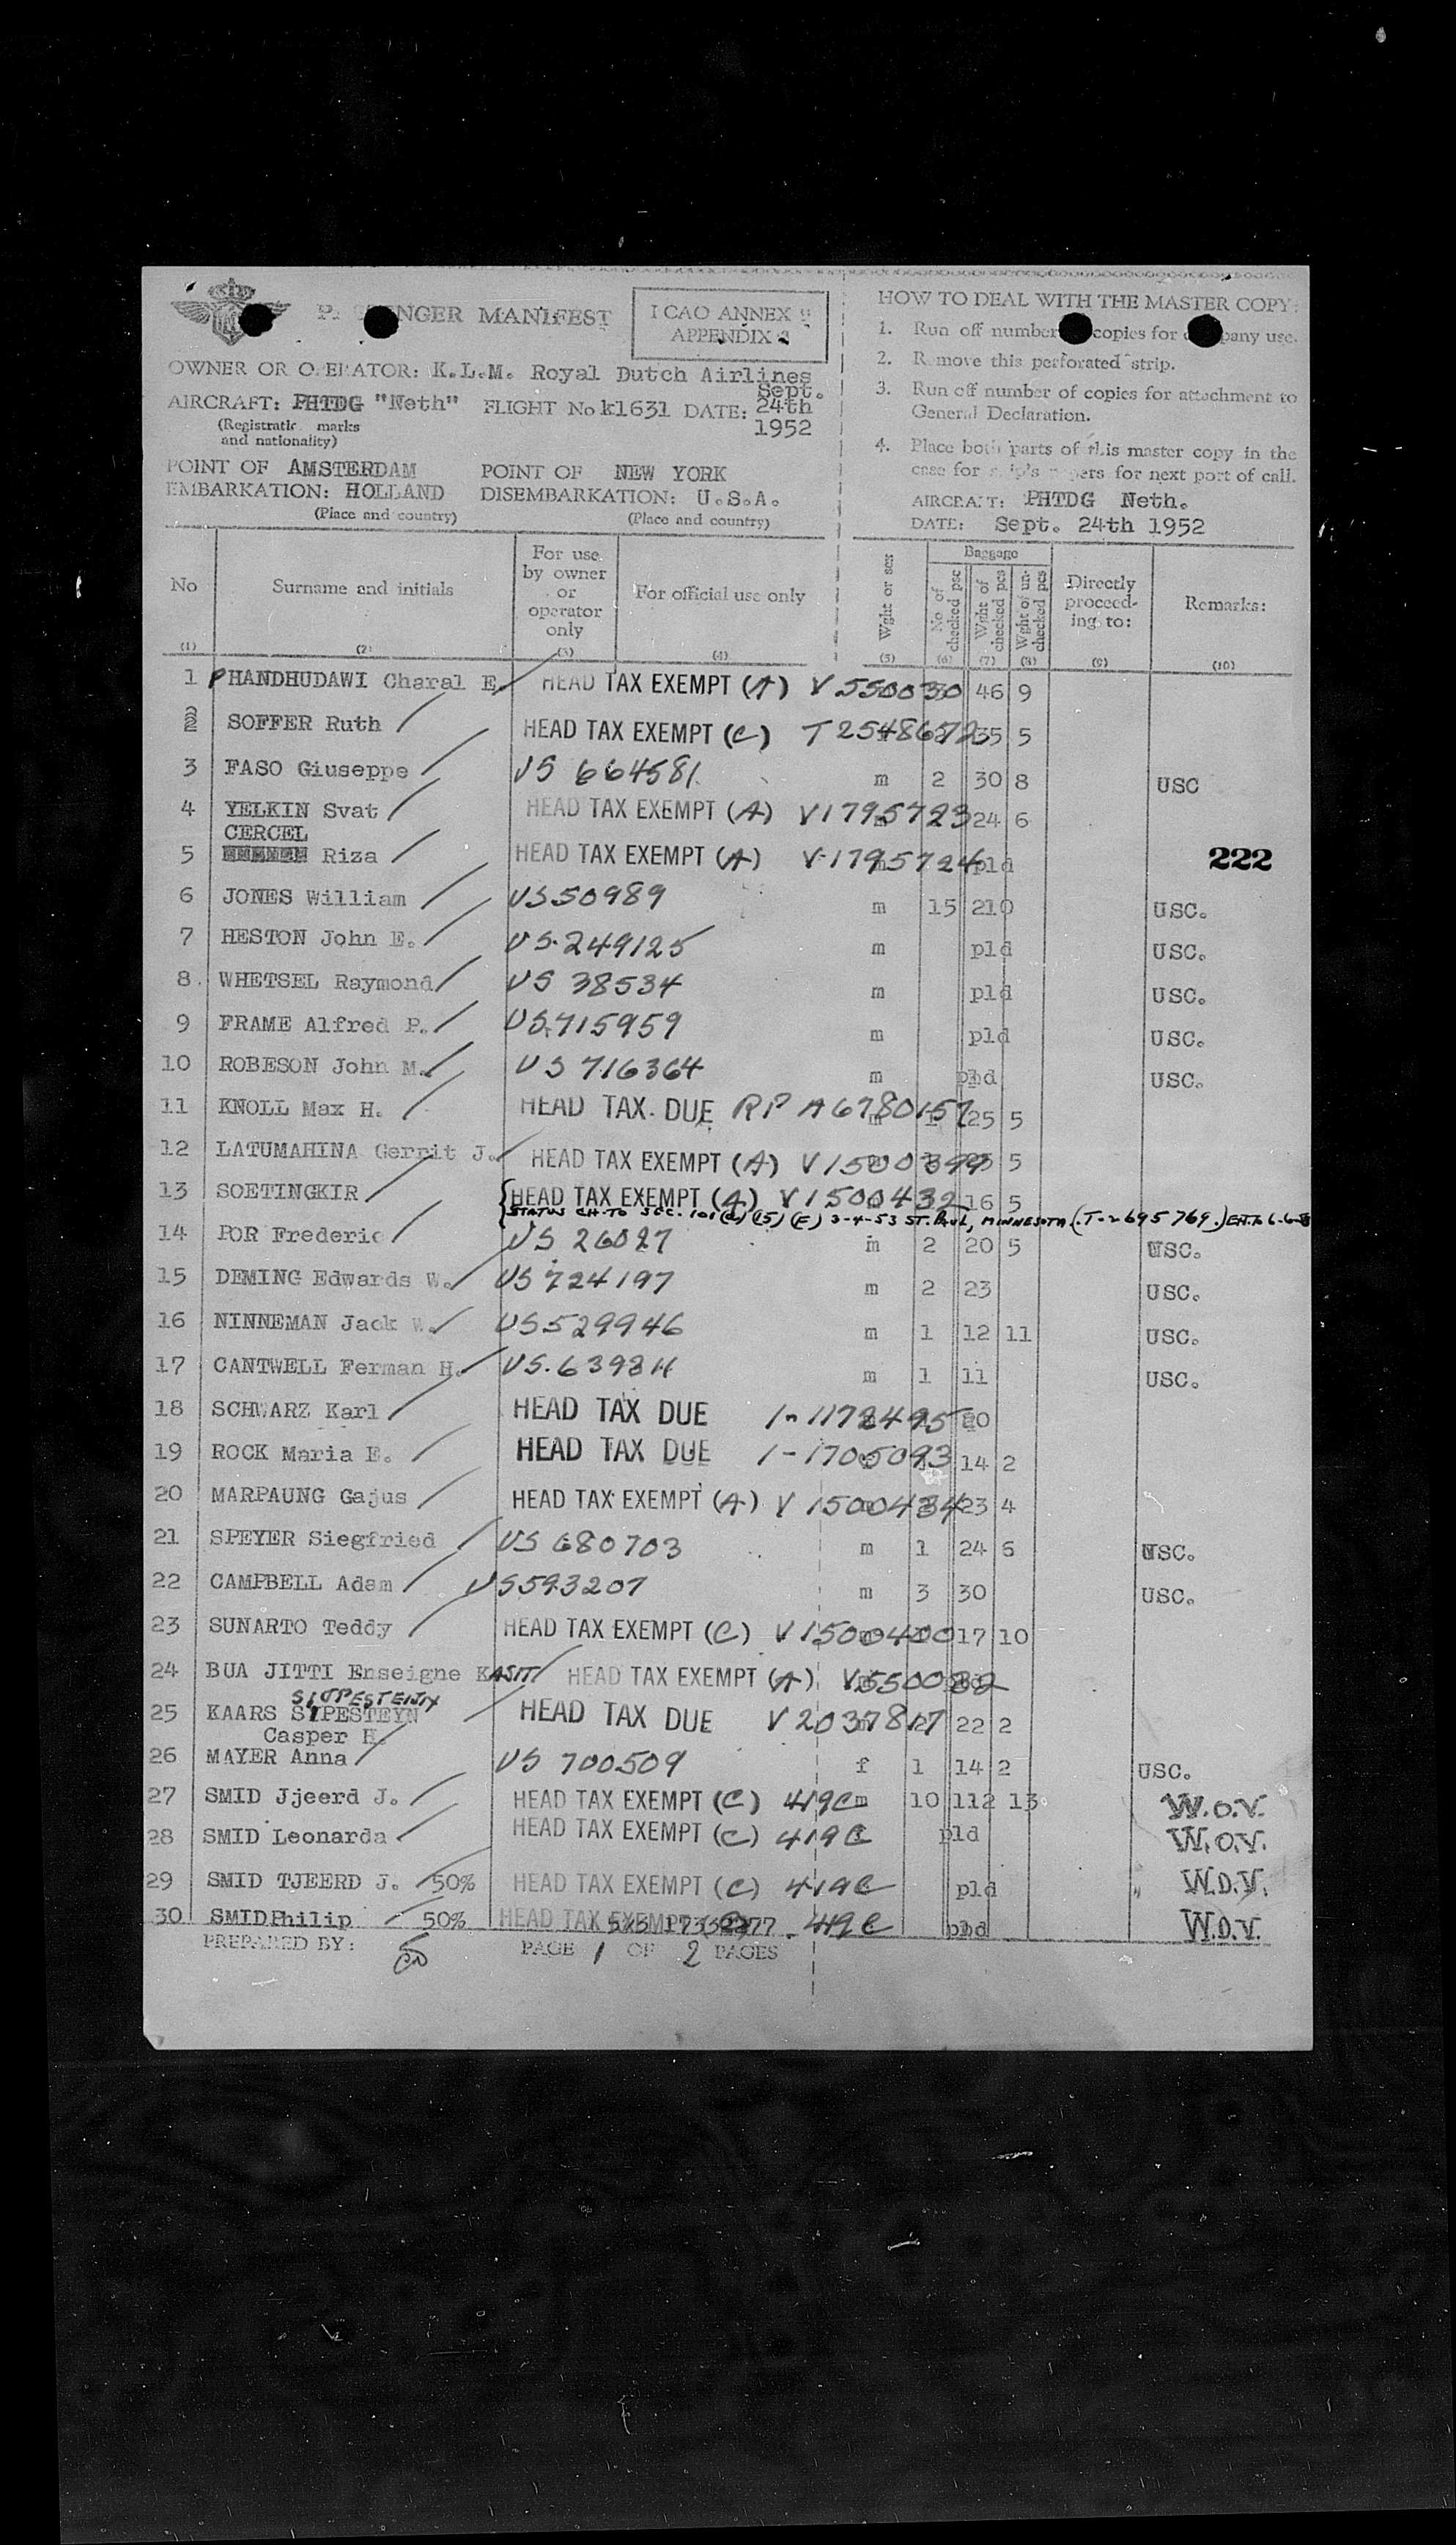 PASSENGER MANIFEST
ICAO ANNEX 9
APPENDIX 3
OWNER OR OPERATOR: K.L.M. Royal Dutch Airlines
AIRCRAFT: PHTDG "Neth" FLIGHT No k1631 DATE: Sept. 24th 1952
(Registratio marks
and nationality)
POINT OF EMBARKATION: AMSTERDAM HOLLAND
(Place and country)
POINT OF DISEMBARKATION: NEW YORK U.S.A.
(Place and country)
HOW TO DEAL WITH THE MASTER COPY:
1. Run off number copies for company use.
2. Remove this perforated strip.
3. Run off number of copies for attachment to
General Declaration.
4. Place both parts of this master copy in the
case for ship's papers for next port of call.
AIRCRAFT: PHTDG Neth.
DATE: Sept. 24th 1952
No Surname and initials For use by owner or operator only For official use only Wght or sex Baggage No of checked psc Wght of checked pcs Wght of un-checked pcs Directly proceed-ing to: Remarks:
(1) (2) (3) (4) (5) (6) (7) (8) (9) (10)
1 PHANDHUDAWI Charal E. HEAD TAX EXEMPT (A) V 550030 46 9
2 SOFFER Ruth HEAD TAX EXEMPT (C) T 2548672 35 5
3 FASO Giuseppe US 664581 m 2 30 8 USC
4 YELKIN Svat HEAD TAX EXEMPT (A) V1795723 24 6
CERCEL
5 Riza HEAD TAX EXEMPT (A) V-1795724 pld
222
6 JONES William US50989 m 15 210 USC.
7 HESTON John E. US.249125 m pld USC.
8. WHETSEL Raymond US 38534 m pld USC.
9 FRAME Alfred P. US.715959 m pld USC.
10 ROBESON John M. US 716364 m USC.
11 KNOLL Max H. HEAD TAX DUE RP A6780157 25 5
12 LATUMAHINA Gerrit J. HEAD TAX EXEMPT (A) V1500399 5
13 SOETINGKIR HEAD TAX EXEMPT (A) V1500432 16 5
STATUS CH. TO SEC. 101(a)(15)(F) 3-4-53 ST. PAUL, MINNESOTA (T-2695769.)
14 POR Frederic US 26027 m 2 20 5 USC.
15 DEMING Edwards W. US 724197 m 2 23 USC.
16 NINNEMAN Jack W. US529946 m 1 12 11 USC.
17 CANTWELL Ferman H. US. m 1 11 USC.
18 SCHWARZ Karl HEAD TAX DUE 1-1172495 20
19 ROCK Maria E. HEAD TAX DUE 1-1705093 14 2
20 MARPAUNG Gajus HEAD TAX EXEMPT (A) V 1500434 23 4
21 SPEYER Siegfried US 680703 m 1 24 6 USC.
22 CAMPBELL Adam US593207 m 3 30 USC.
23 SUNARTO Teddy HEAD TAX EXEMPT (C) V1500400 17 10
24 BUA JITTI Enseigne KASIT HEAD TAX EXEMPT (A) V550032
SIJPESTEIJN
25 KAARS SYPESTEYN HEAD TAX DUE V2037817 22 2
Casper H.
26 MAYER Anna US 700509 f 1 14 2 USC.
27 SMID Jjeerd J. HEAD TAX EXEMPT (C) 419C m 10 112 13 W.O.V.
28 SMID Leonarda HEAD TAX EXEMPT (C) 419C pld W.O.V.
29 SMID TJEERD J. 50% HEAD TAX EXEMPT (C) 419C pld W.O.V.
30 SMID Philip 50% HEAD TAX EXEMPT 419C W.O.V.
PREPARED BY: PAGE 1 OF 2 PAGES